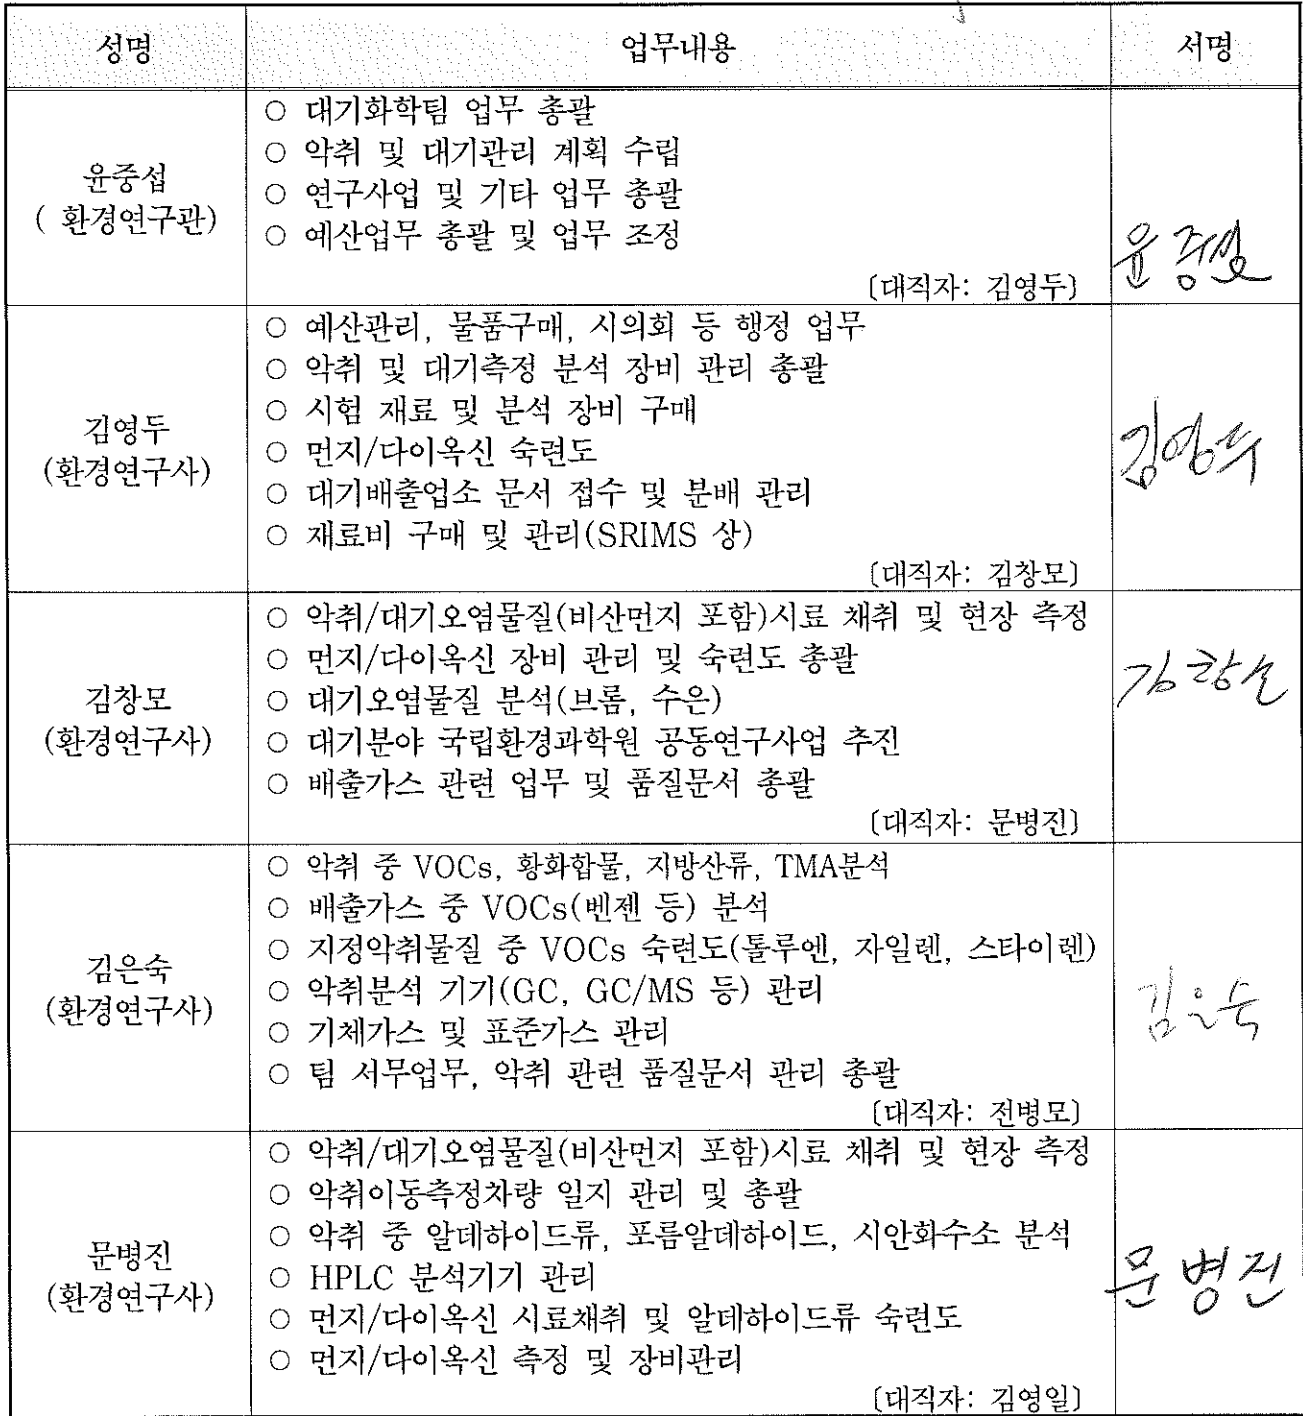 성명 업무내용 서명
윤중섭
( 환경연구관)
○ 대기화학팀 업무 총괄
○ 악취 및 대기관리 계획 수립
○ 연구사업 및 기타 업무 총괄
○ 예산업무 총괄 및 업무 조정
〔대직자: 김영두〕
윤중섭
김영두
(환경연구사)
○ 예산관리, 물품구매, 시의회 등 행정 업무
○ 악취 및 대기측정 분석 장비 관리 총괄
○ 시험 재료 및 분석 장비 구매
○ 먼지/다이옥신 숙련도
○ 대기배출업소 문서 접수 및 분배 관리
○ 재료비 구매 및 관리(SRIMS 상)
〔대직자: 김창모〕
김영두
김창모
(환경연구사)
○ 악취/대기오염물질(비산먼지 포함)시료 채취 및 현장 측정
○ 먼지/다이옥신 장비 관리 및 숙련도 총괄
○ 대기오염물질 분석(브롬, 수은)
○ 대기분야 국립환경과학원 공동연구사업 추진
○ 배출가스 관련 업무 및 품질문서 총괄
〔대직자: 문병진〕
김창모
김은숙
(환경연구사)
○ 악취 중 VOCs, 황화합물, 지방산류, TMA분석
○ 배출가스 중 VOCs(벤젠 등) 분석
○ 지정악취물질 중 VOCs 숙련도(톨루엔, 자일렌, 스타이렌)
○ 악취분석 기기(GC, GC/MS 등) 관리
○ 기체가스 및 표준가스 관리
○ 팀 서무업무, 악취 관련 품질문서 관리 총괄
〔대직자: 전병모〕
김은숙
문병진
(환경연구사)
○ 악취/대기오염물질(비산먼지 포함)시료 채취 및 현장 측정
○ 악취이동측정차량 일지 관리 및 총괄
○ 악취 중 알데하이드류, 포름알데하이드, 시안화수소 분석
○ HPLC 분석기기 관리
○ 먼지/다이옥신 시료채취 및 알데하이드류 숙련도
○ 먼지/다이옥신 측정 및 장비관리
〔대직자: 김영일〕
문병진